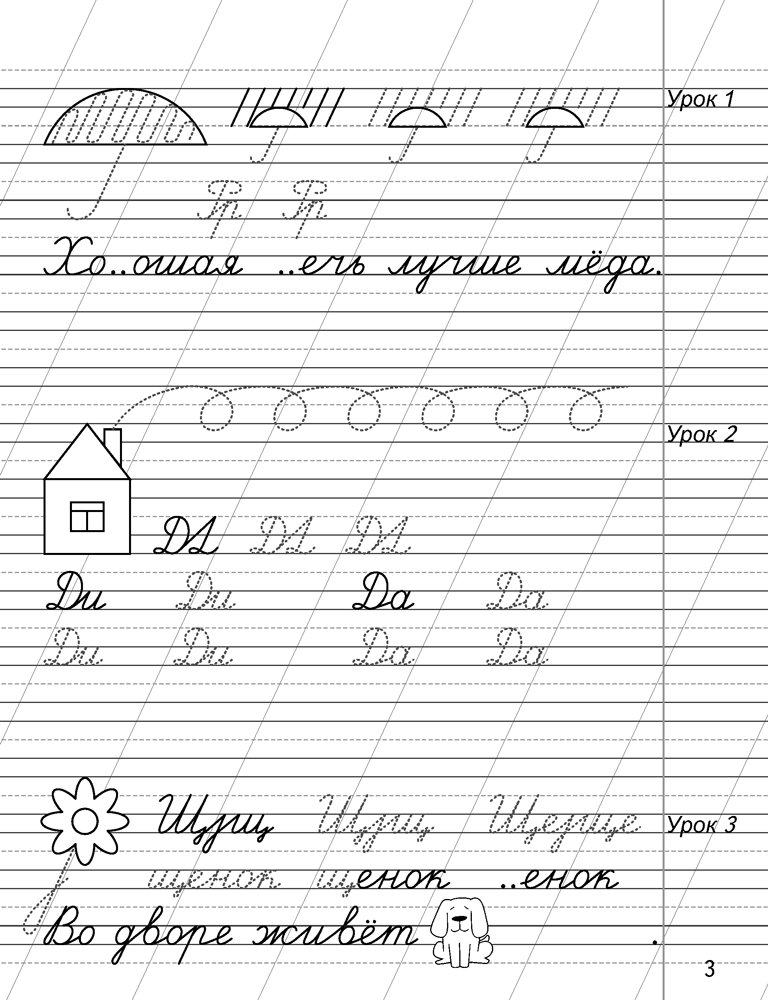 Урок 1
Рр Рр
Хо..ошая ..ечь лучше мёда.
Урок 2
Дд Дд Дд
Ди Ди Да Да
Ди Ди Да Да
Щщщ Щщщ Щещще Урок 3
щенок щенок ..енок
Во дворе живёт .
3